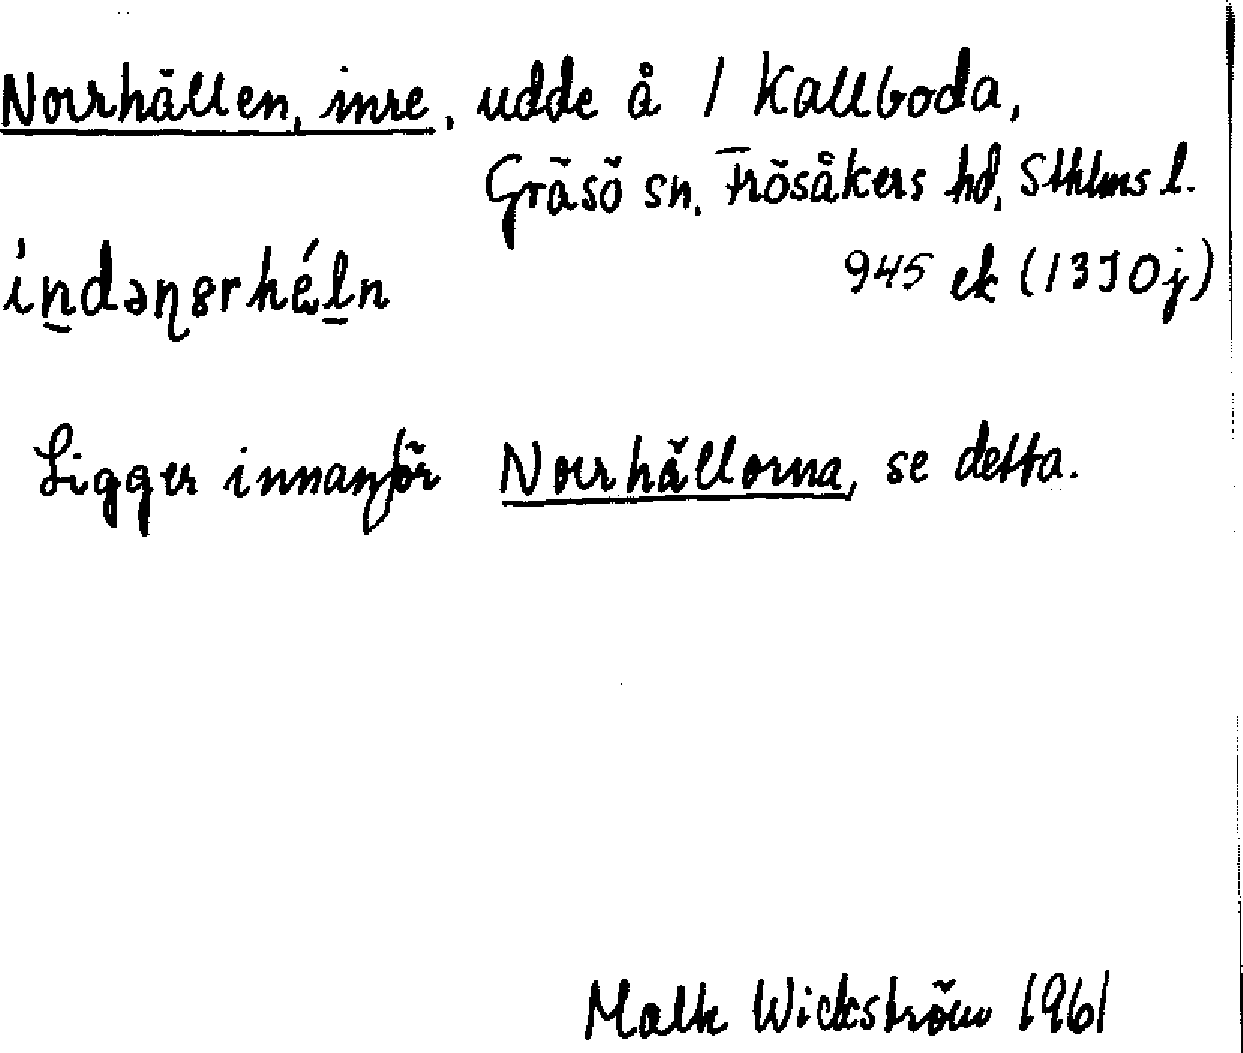 Norrhällen, inre, udde å 1 Kallboda,
Gräsö sn, Frösåkers hd, Sthlms l.
945 ek (13J0j)
Ligger innanför Norrhällorna, se detta.
Wickström 1961